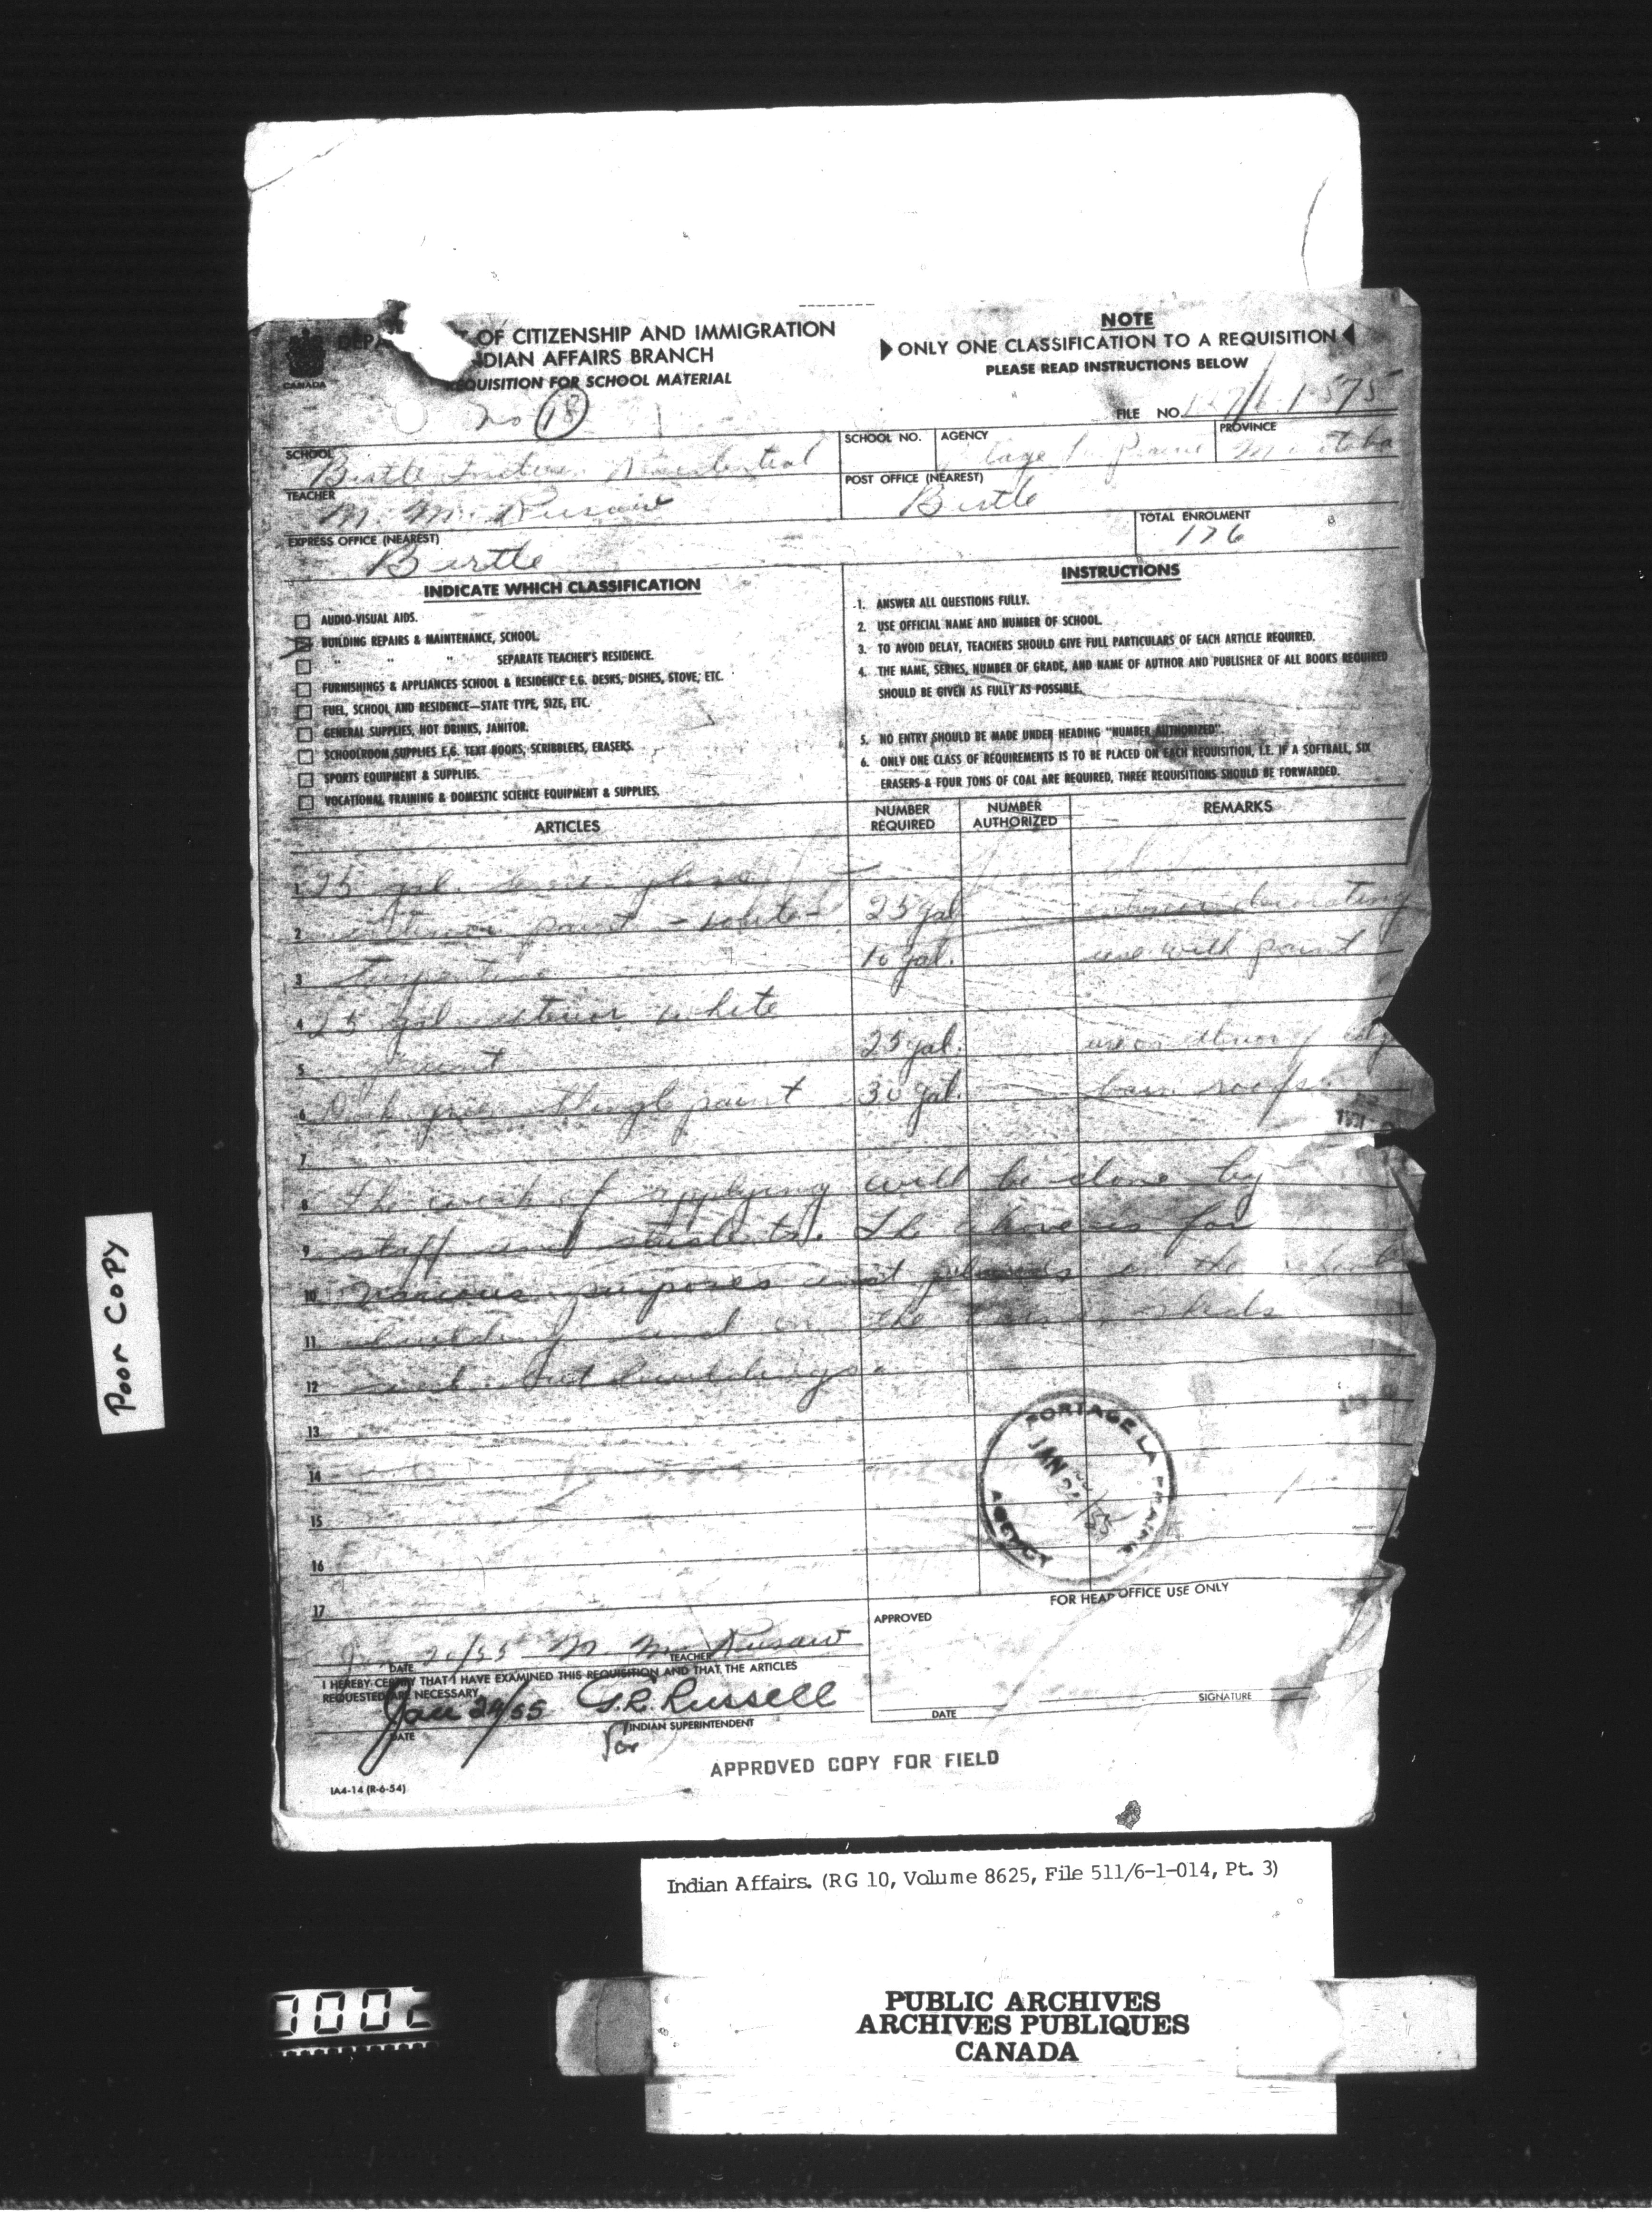 OF CITIZENSHIP AND IMMIGRATION
INDIAN AFFAIRS BRANCH
REQUISITION FOR SCHOOL MATERIAL
CANADA
NOTE
ONLY ONE CLASSIFICATION TO A REQUISITION
PLEASE READ INSTRUCTIONS BELOW
no 18
FILE NO.
SCHOOL Birtle Indian Residential
SCHOOL NO.
AGENCY La Prairie
PROVINCE
TEACHER N. M. Rusaw
POST OFFICE (NEAREST) Birtle
EXPRESS OFFICE (NEAREST) Birtle
TOTAL ENROLMENT 176
INDICATE WHICH CLASSIFICATION
AUDIO-VISUAL AIDS.
BUILDING REPAIRS & MAINTENANCE, SCHOOL.
" " " SEPARATE TEACHER'S RESIDENCE.
FURNISHINGS & APPLIANCES SCHOOL & RESIDENCE E.G. DESKS, DISHES, STOVE, ETC.
FUEL, SCHOOL AND RESIDENCE—STATE TYPE, SIZE, ETC.
GENERAL SUPPLIES, HOT DRINKS, JANITOR.
SCHOOLROOM SUPPLIES E.G. TEXT BOOKS, SCRIBBLERS, ERASERS.
SPORTS EQUIPMENT & SUPPLIES.
VOCATIONAL TRAINING & DOMESTIC SCIENCE EQUIPMENT & SUPPLIES.
INSTRUCTIONS
1. ANSWER ALL QUESTIONS FULLY.
2. USE OFFICIAL NAME AND NUMBER OF SCHOOL.
3. TO AVOID DELAY, TEACHERS SHOULD GIVE FULL PARTICULARS OF EACH ARTICLE REQUIRED.
4. THE NAME, SERIES, NUMBER OF GRADE, AND NAME OF AUTHOR AND PUBLISHER OF ALL BOOKS REQUIRED
SHOULD BE GIVEN AS FULLY AS POSSIBLE.
5. NO ENTRY SHOULD BE MADE UNDER HEADING "NUMBER AUTHORIZED".
6. ONLY ONE CLASS OF REQUIREMENTS IS TO BE PLACED ON EACH REQUISITION, I.E. IF A SOFTBALL, SIX
ERASERS & FOUR TONS OF COAL ARE REQUIRED, THREE REQUISITIONS SHOULD BE FORWARDED.
ARTICLES
NUMBER REQUIRED
NUMBER AUTHORIZED
REMARKS
1 25 gal. semi gloss
2 interior paint - white - 25 gal. interior decorating
3 turpentine 10 gal. use with paint
4 25 gal exterior white
5 paint 25 gal. use on
6 Dark green shingle paint 30 gal. barn roofs.
7
8 The work of applying will be done by
9 staff and students. The above is for
10 various purposes and in the school
11 building and on the barn sheds
12 and out buildings.
13
14
15
16
17
PORTAGE LA PRAIRIE
JAN 22/55
AGENCY
FOR HEAD OFFICE USE ONLY
APPROVED
Jan 20/55 N. M. Rusaw
DATE TEACHER
I HEREBY CERTIFY THAT I HAVE EXAMINED THIS REQUISITION AND THAT THE ARTICLES
REQUESTED ARE NECESSARY
Jan 24/55 G.R. Russell
DATE for INDIAN SUPERINTENDENT
DATE
SIGNATURE
APPROVED COPY FOR FIELD
IA4-14 (R-6-54)
Poor Copy
Indian Affairs. (RG 10, Volume 8625, File 511/6-1-014, Pt. 3)
PUBLIC ARCHIVES
ARCHIVES PUBLIQUES
CANADA